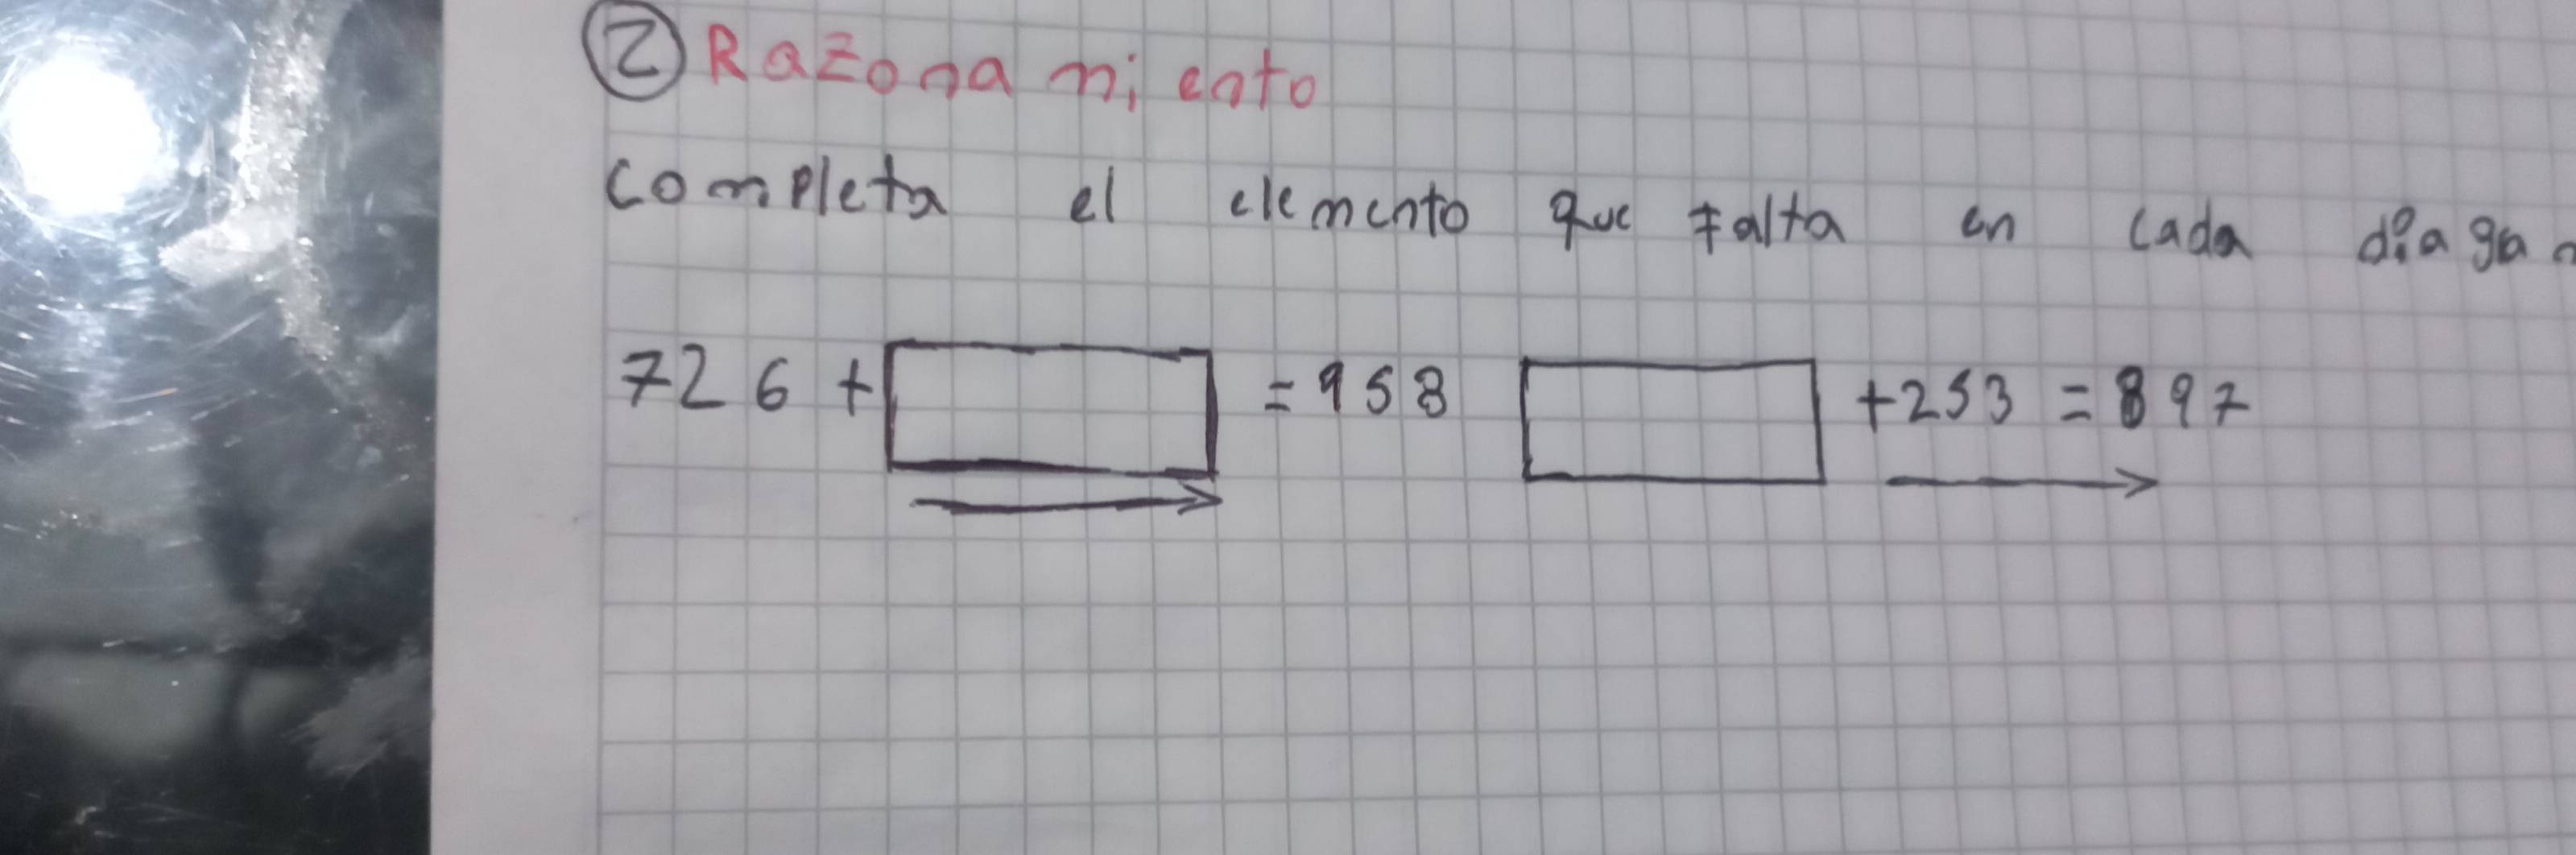 ② Razonamiento
completa el elemento que falta en cada
726 + = 958 +253 = 897